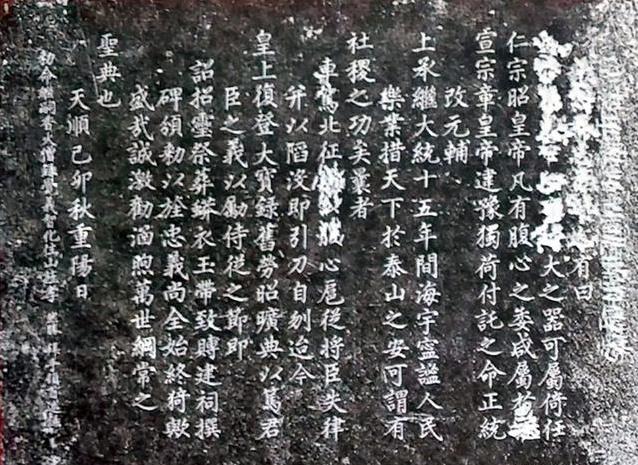 有曰
大之器可屬倚任
仁宗昭皇帝凡有腹心之委咸屬於
宣宗章皇帝建豫獨荷付託之命正統
改元輔
上承繼大統十五年間海宇寧謐人民
樂業措天下於泰山之安可謂有
社稷之功矣曩者
車駕北征腹心扈從將臣失律
并以陷沒即引刀自刎迨今
皇上復登大寶錄舊勞昭曠典以篤君
臣之義以勵侍從之節即
詔招靈祭葬蟒衣玉帶致賻建祠撰
碑頒勑以旌忠義尚全始終猗歟
盛哉誠激勸涵煦萬世綱常之
聖典也
天順己卯秋重陽日
勑命僧錄覺義智化山